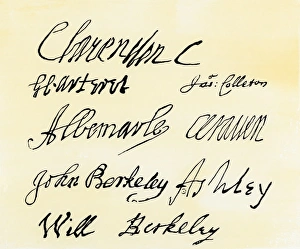 Clarendon C
G Carteret Jo: Colleton
Albemarle craven
John Berkeley Ashley
Will Berkeley